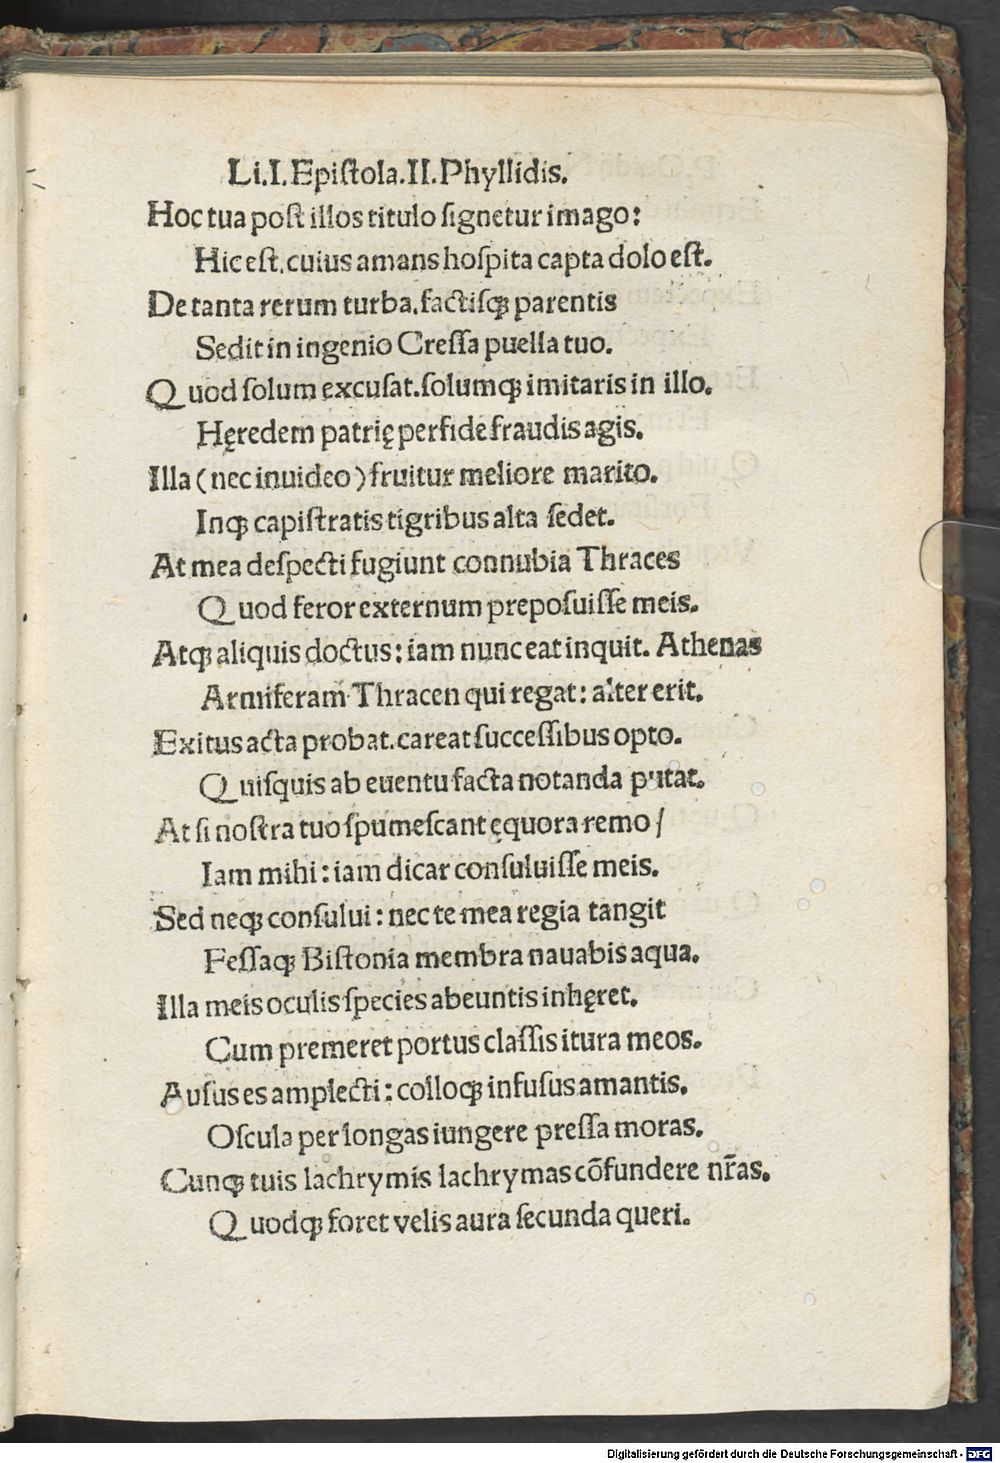 Li.I.Epiſtola.II.Phyllidis.
Hoc tua poſt illos titulo ſignetur imago:
Hic eſt.cuius amans hoſpita capta dolo eſt.
De tanta rerum turba.factiſqꝫ parentis
Sedit in ingenio Creſſa puella tuo.
Quod ſolum excuſat.ſolumqꝫ imitaris in illo.
Hęredem patrię perfide fraudis agis.
Illa (nec inuideo) fruitur meliore marito.
Inqꝫ capiſtratis tigribus alta ſedet.
At mea deſpecti fugiunt connubia Thraces
Quod feror externum prepoſuiſſe meis.
Atqꝫ aliquis doctus: iam nunc eat inquit. Athenas
Armiferam Thracen qui regat: alter erit.
Exitus acta probat.careat ſucceſſibus opto.
Quiſquis ab euentu facta notanda putat.
At ſi noſtra tuo ſpumeſcant ęquora remo/
Iam mihi: iam dicar conſuluiſſe meis.
Sed neqꝫ conſului: nec te mea regia tangit
Feſſaqꝫ Biſtonia membra nauabis aqua.
Illa meis oculis ſpecies abeuntis inhęret.
Cum premeret portus claſſis itura meos.
Auſus es amplecti: colloqꝫ infuſus amantis.
Oſcula per longas iungere preſſa moras.
Cunqꝫ tuis lachrymis lachrymas cōfundere nr̄as.
Quodqꝫ foret velis aura ſecunda queri.
Digitalisierung gefördert durch die Deutsche Forschungsgemeinschaft - DFG